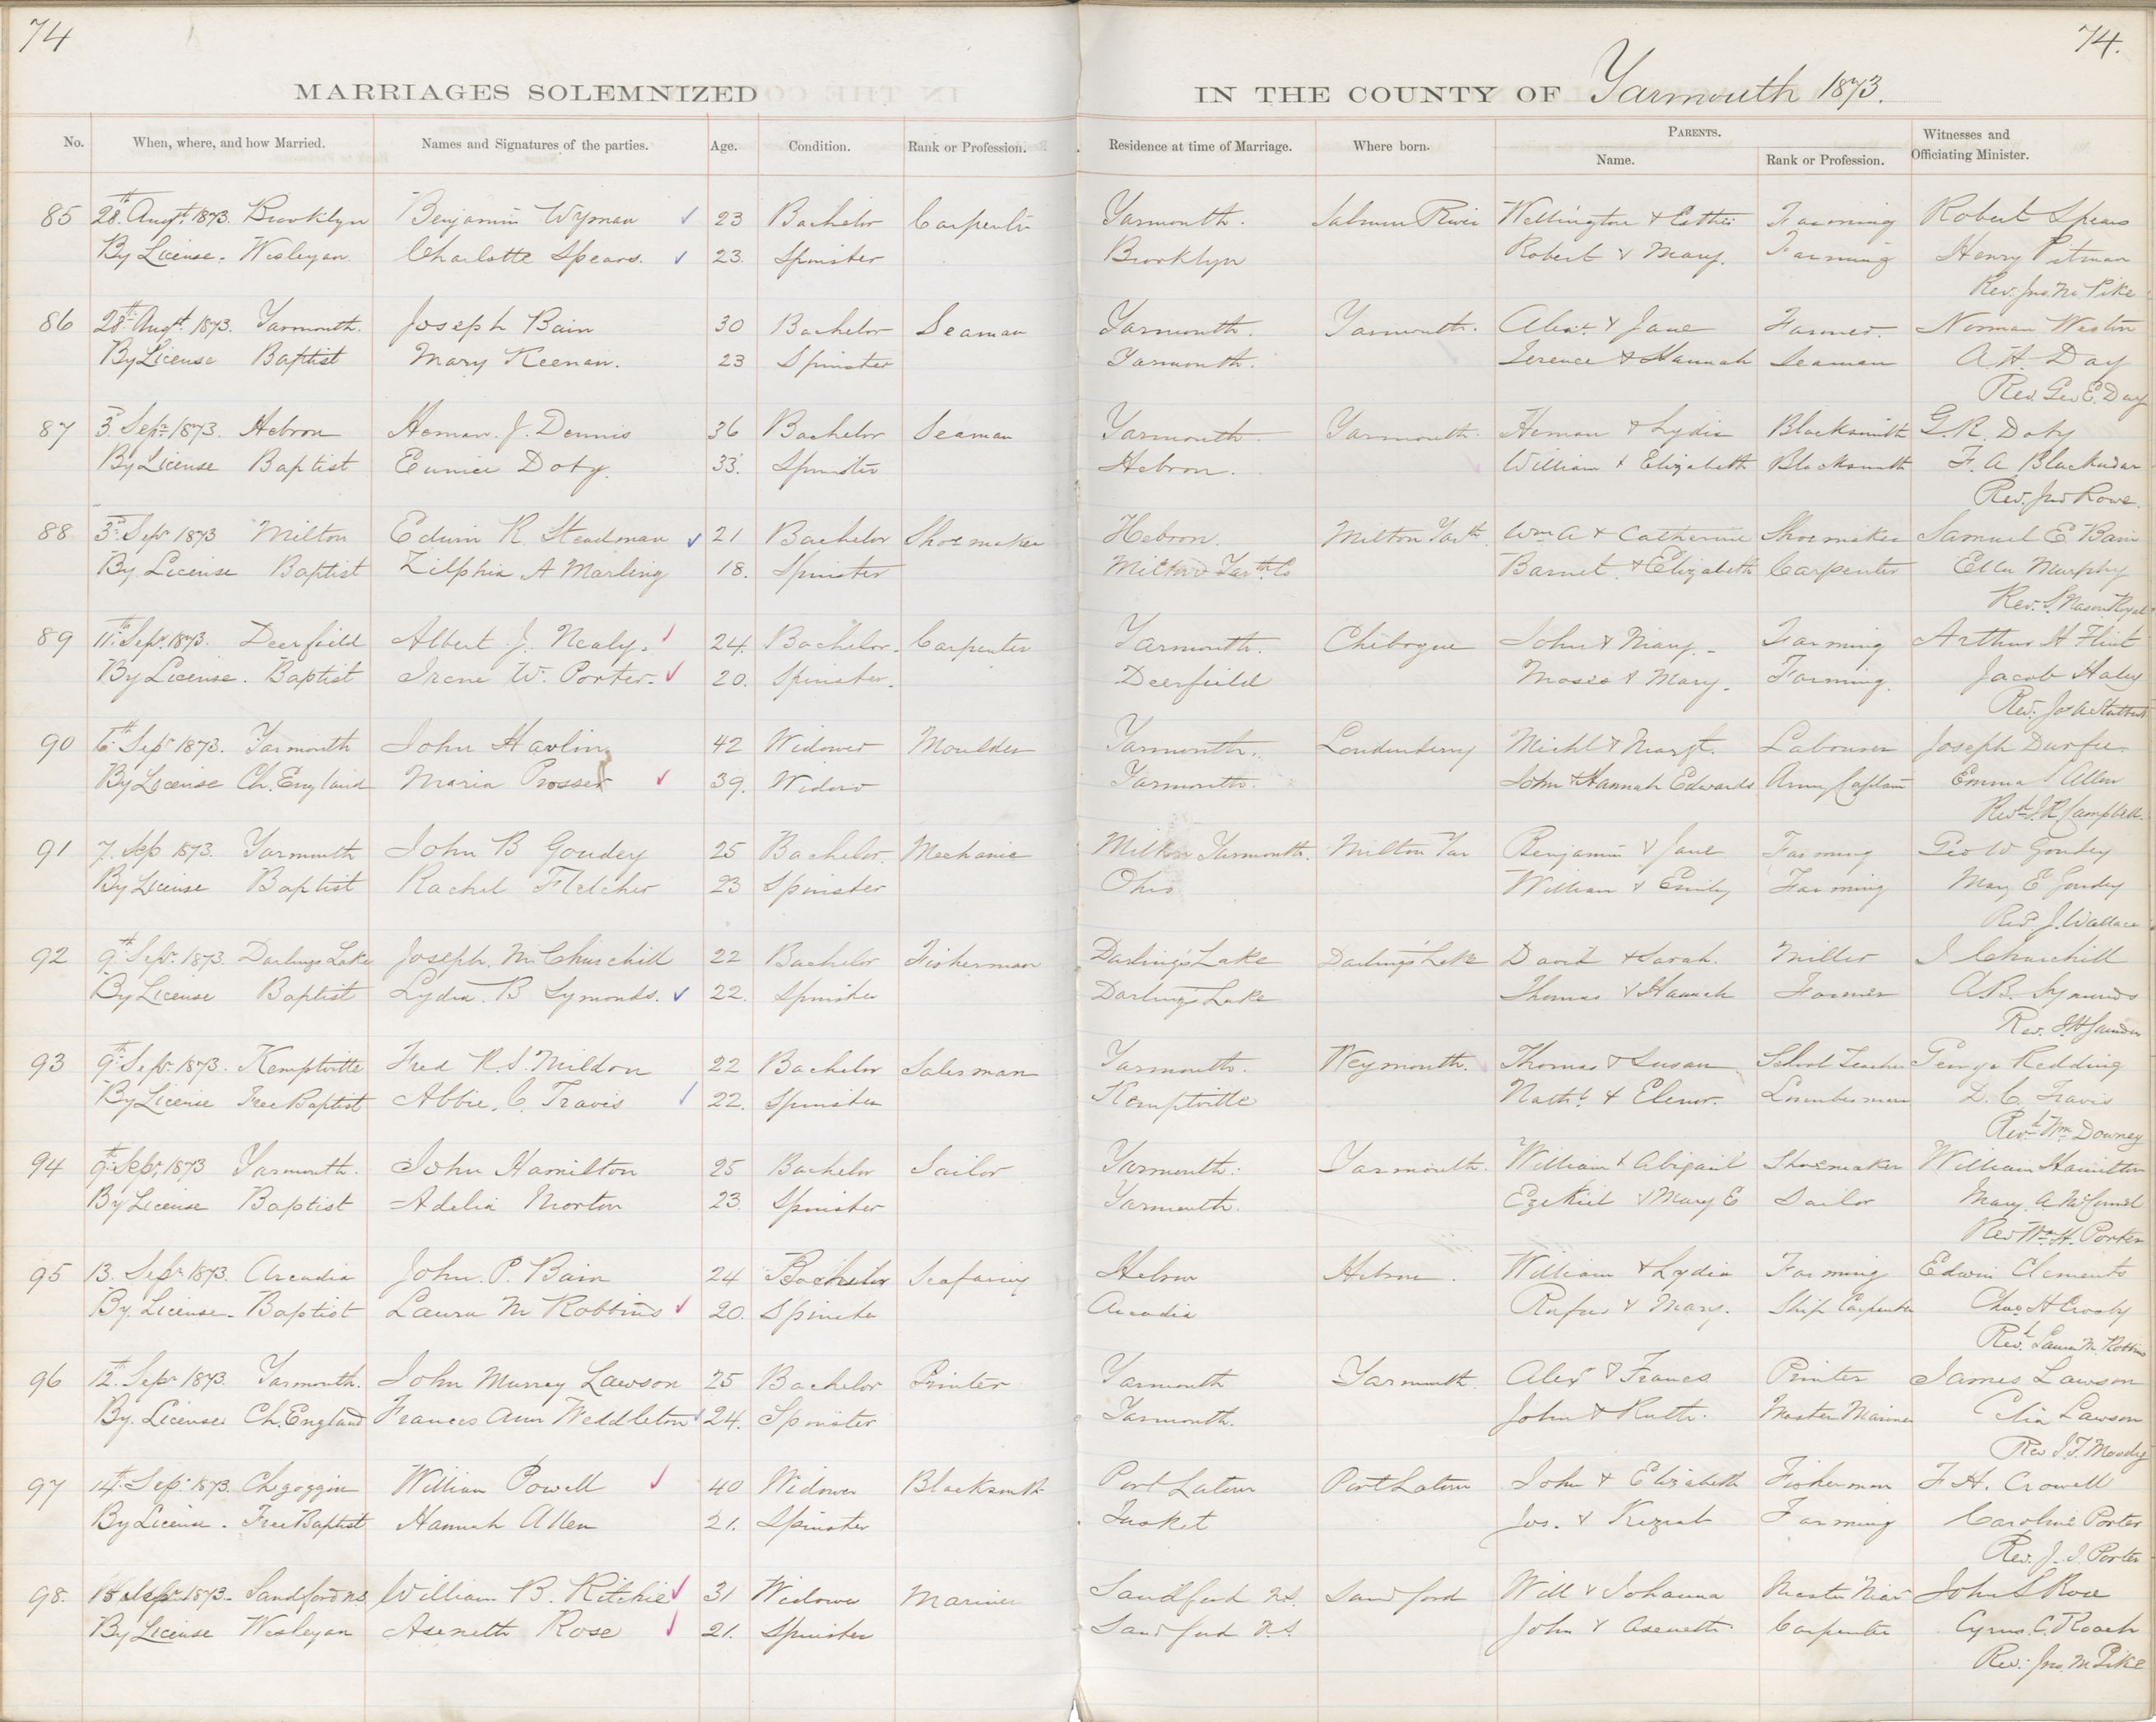 74
74.
MARRIAGES SOLEMNIZED
IN THE COUNTY OF Yarmouth 1873.
No. When, where, and how Married. Names and Signatures of the parties. Age. Condition. Rank or Profession. Residence at time of Marriage. Where born. PARENTS. Name. Rank or Profession. Witnesses and Officiating Minister.
85 28th Augt. 1873. Brooklyn Benjamin Wyman 23 Bachelor Carpenter Yarmouth. Salmon River Wellington & Esther Farming Robert Spears
By License. Wesleyan Charlotte Spears. 23. Spinster Brooklyn Robert & Mary. Farming Henry Pitman
Rev. Jno. M. Pike
86 28th Augt. 1873. Yarmouth. Joseph Bain 30 Bachelor Seaman Yarmouth. Yarmouth. Alexr. & Jane Farmer. Norman Weston
By License Baptist Mary Keenan. 23 Spinster Yarmouth. Terence & Hannah Seaman A. H. Day
Rev. Geo E. Day
87 3 Sepr. 1873. Hebron Heman. J. Dennis 36 Bachelor Seaman Yarmouth. Yarmouth. Heman & Lydia Blacksmith G. R. Doty
By License Baptist Eunice Doty. 33. Spinster Hebron. William & Elizabeth Blacksmith F. A Blackadar
Rev. Jno Rowe.
88 3rd Sepr 1873 Milton Edwin R. Steadman 21 Bachelor Shoemaker Hebron. Milton Yarth. Wm A & Catherine Shoemaker Samuel E Bain
By License Baptist Zilphia A Marling 18. Spinster Milton Yarth. Co Barnet. & Elizabeth Carpenter Ella Murphy
Rev.
89 11th Sepr. 1873. Deerfield Albert J. Nealy. 24. Bachelor. Carpenter Yarmouth. Chebogue John & Mary. Farming Arthur H Flint
By License. Baptist Irene W. Porter. 20. Spinster. Deerfield Moses & Mary. Farming. Jacob Haley
Rev.
90 6th Sepr 1873. Yarmouth John Havlin 42 Widower Moulder Yarmouth. Londonderry Michl & Margt. Labourer Joseph Durfee
By License Ch. England Maria Prosser 39. Widow Yarmouth. John & Hannah Edwards Army Captain Emma S Allen
Revd. J. R Campbell.
91 7. Sep 1873. Yarmouth John B Goudey 25 Bachelor. Mechanic Milton Yarmouth. Milton Yar Benjamin & Jane Farming Geo W Goudey
By License Baptist Rachel Fletcher 23 Spinster Ohio William & Emily Farming Mary E Goudey
Revd J. Wallace
92 9th Sepr. 1873. Darlings Lake Joseph. M. Churchill 22 Bachelor Fisherman Darling's Lake Darling's Lake David & Sarah. Miller J Churchill
By License Baptist Lydia. B Symonds. 22. Spinster Darling's Lake Thomas & Hannah Farmer A. B. Symonds
Rev. J. H Saunders
93 9th Sepr. 1873. Kemptville Fred R. S. Mildon 22 Bachelor Salesman Yarmouth. Weymouth. Thomas & Susan School Teacher George Redding
By License Free Baptist Abbie. C. Travis 22. Spinster Kemptville Nathl. & Elenor. Lumberman D. C. Travis
Revd. Wm Downey
94 9th Sepr 1873 Yarmouth. John Hamilton 25 Bachelor Sailor Yarmouth. Yarmouth. William & Abigail Shoemaker William Hamilton
By License Baptist Adelia Norton 23. Spinster Yarmouth. Ezekiel & Mary E Sailor Mary A
Rev Wm. H. Porter
95 13. Sepr. 1873. Arcadia John. P. Bain 24 Bachelor Seafaring Hebron Hebron. William & Lydia Farming Edwin Clements
By. License. Baptist Laura M Robbins 20. Spinster Arcadia Rufus & Mary. Ship Carpenter Chas H Crosby
Revd. Laura M. Robbins
96 12th. Sepr 1873. Yarmouth. John Murray Lawson 25 Bachelor Printer Yarmouth Yarmouth. Alexr & Frances Printer James Lawson
By. License Ch. England Frances Ann Weddleton 24. Spinster Yarmouth. John & Ruth. Master Mariner Celia Lawson
Rev J. T. Moody
97 14th. Sepr 1873. Chegoggin William Powell 40 Widower Blacksmith Port Latour Port Latour John & Elizabeth Fisherman F. H. Crowell
By License. Free Baptist Hannah Allen 21. Spinster Tusket Jos. & Keziah Farming Caroline Porter
Rev. J. I. Porter
98. Sepr 1873. Sandford N.S William B. Ritchie 31 Widower Mariner Sandford N.S. Sandford Will & Johanna Master Mar John S Rose
By License Wesleyan Aseneth Rose 21. Spinster Sandford N.S. John & Aseneth Carpenter Cyrus. C. Roach
Rev. Jno. M. Pike